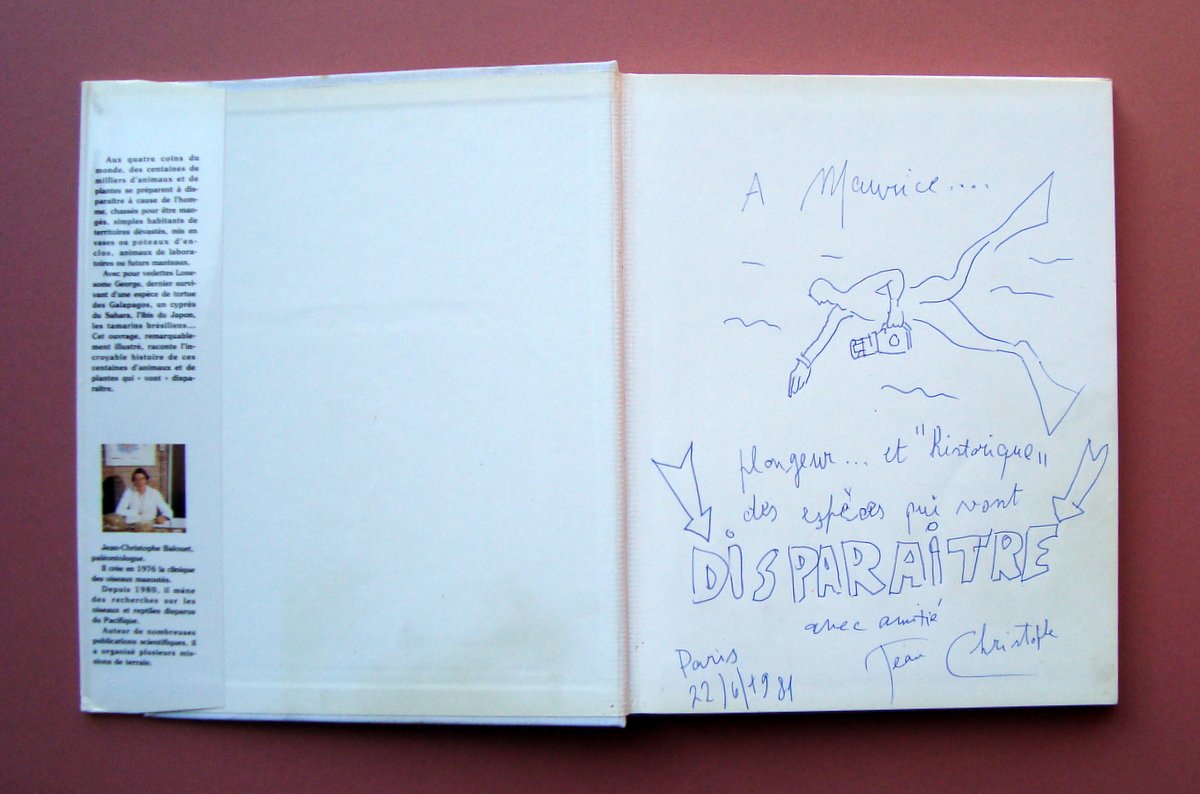 Aux quatre coins du
monde, des centaines de
milliers d'animaux et de
plantes se préparent à dis-
paraître à cause de l'hom-
me, chassés pour être man-
gés, simples habitants de
territoires dévastés, mis en
vases ou poteaux d'en-
clos, animaux de labora-
toires ou futurs manteaux.
Avec pour vedettes Lone-
some George, dernier survi-
vant d'une espèce de tortue
des Galapagos, un cyprès
du Sahara, l'Ibis du Japon,
les tamarins brésiliens...
Cet ouvrage, remarquable-
ment illustré, raconte l'in-
croyable histoire de ces
centaines d'animaux et de
plantes qui « vont » dispa-
raître.
Jean-Christophe Balouet,
paléontologue.
Il crée en 1976 la clinique
des oiseaux mazoutés.
Depuis 1980, il mène
des recherches sur les
oiseaux et reptiles disparus
du Pacifique.
Auteur de nombreuses
publications scientifiques, il
a organisé plusieurs mis-
sions de terrain.
A Maurice....
plongeur... et "historique"
des espèces qui vont
DiSPARAiTRE
avec amitié
Jean Christophe
Paris
22/6/1981